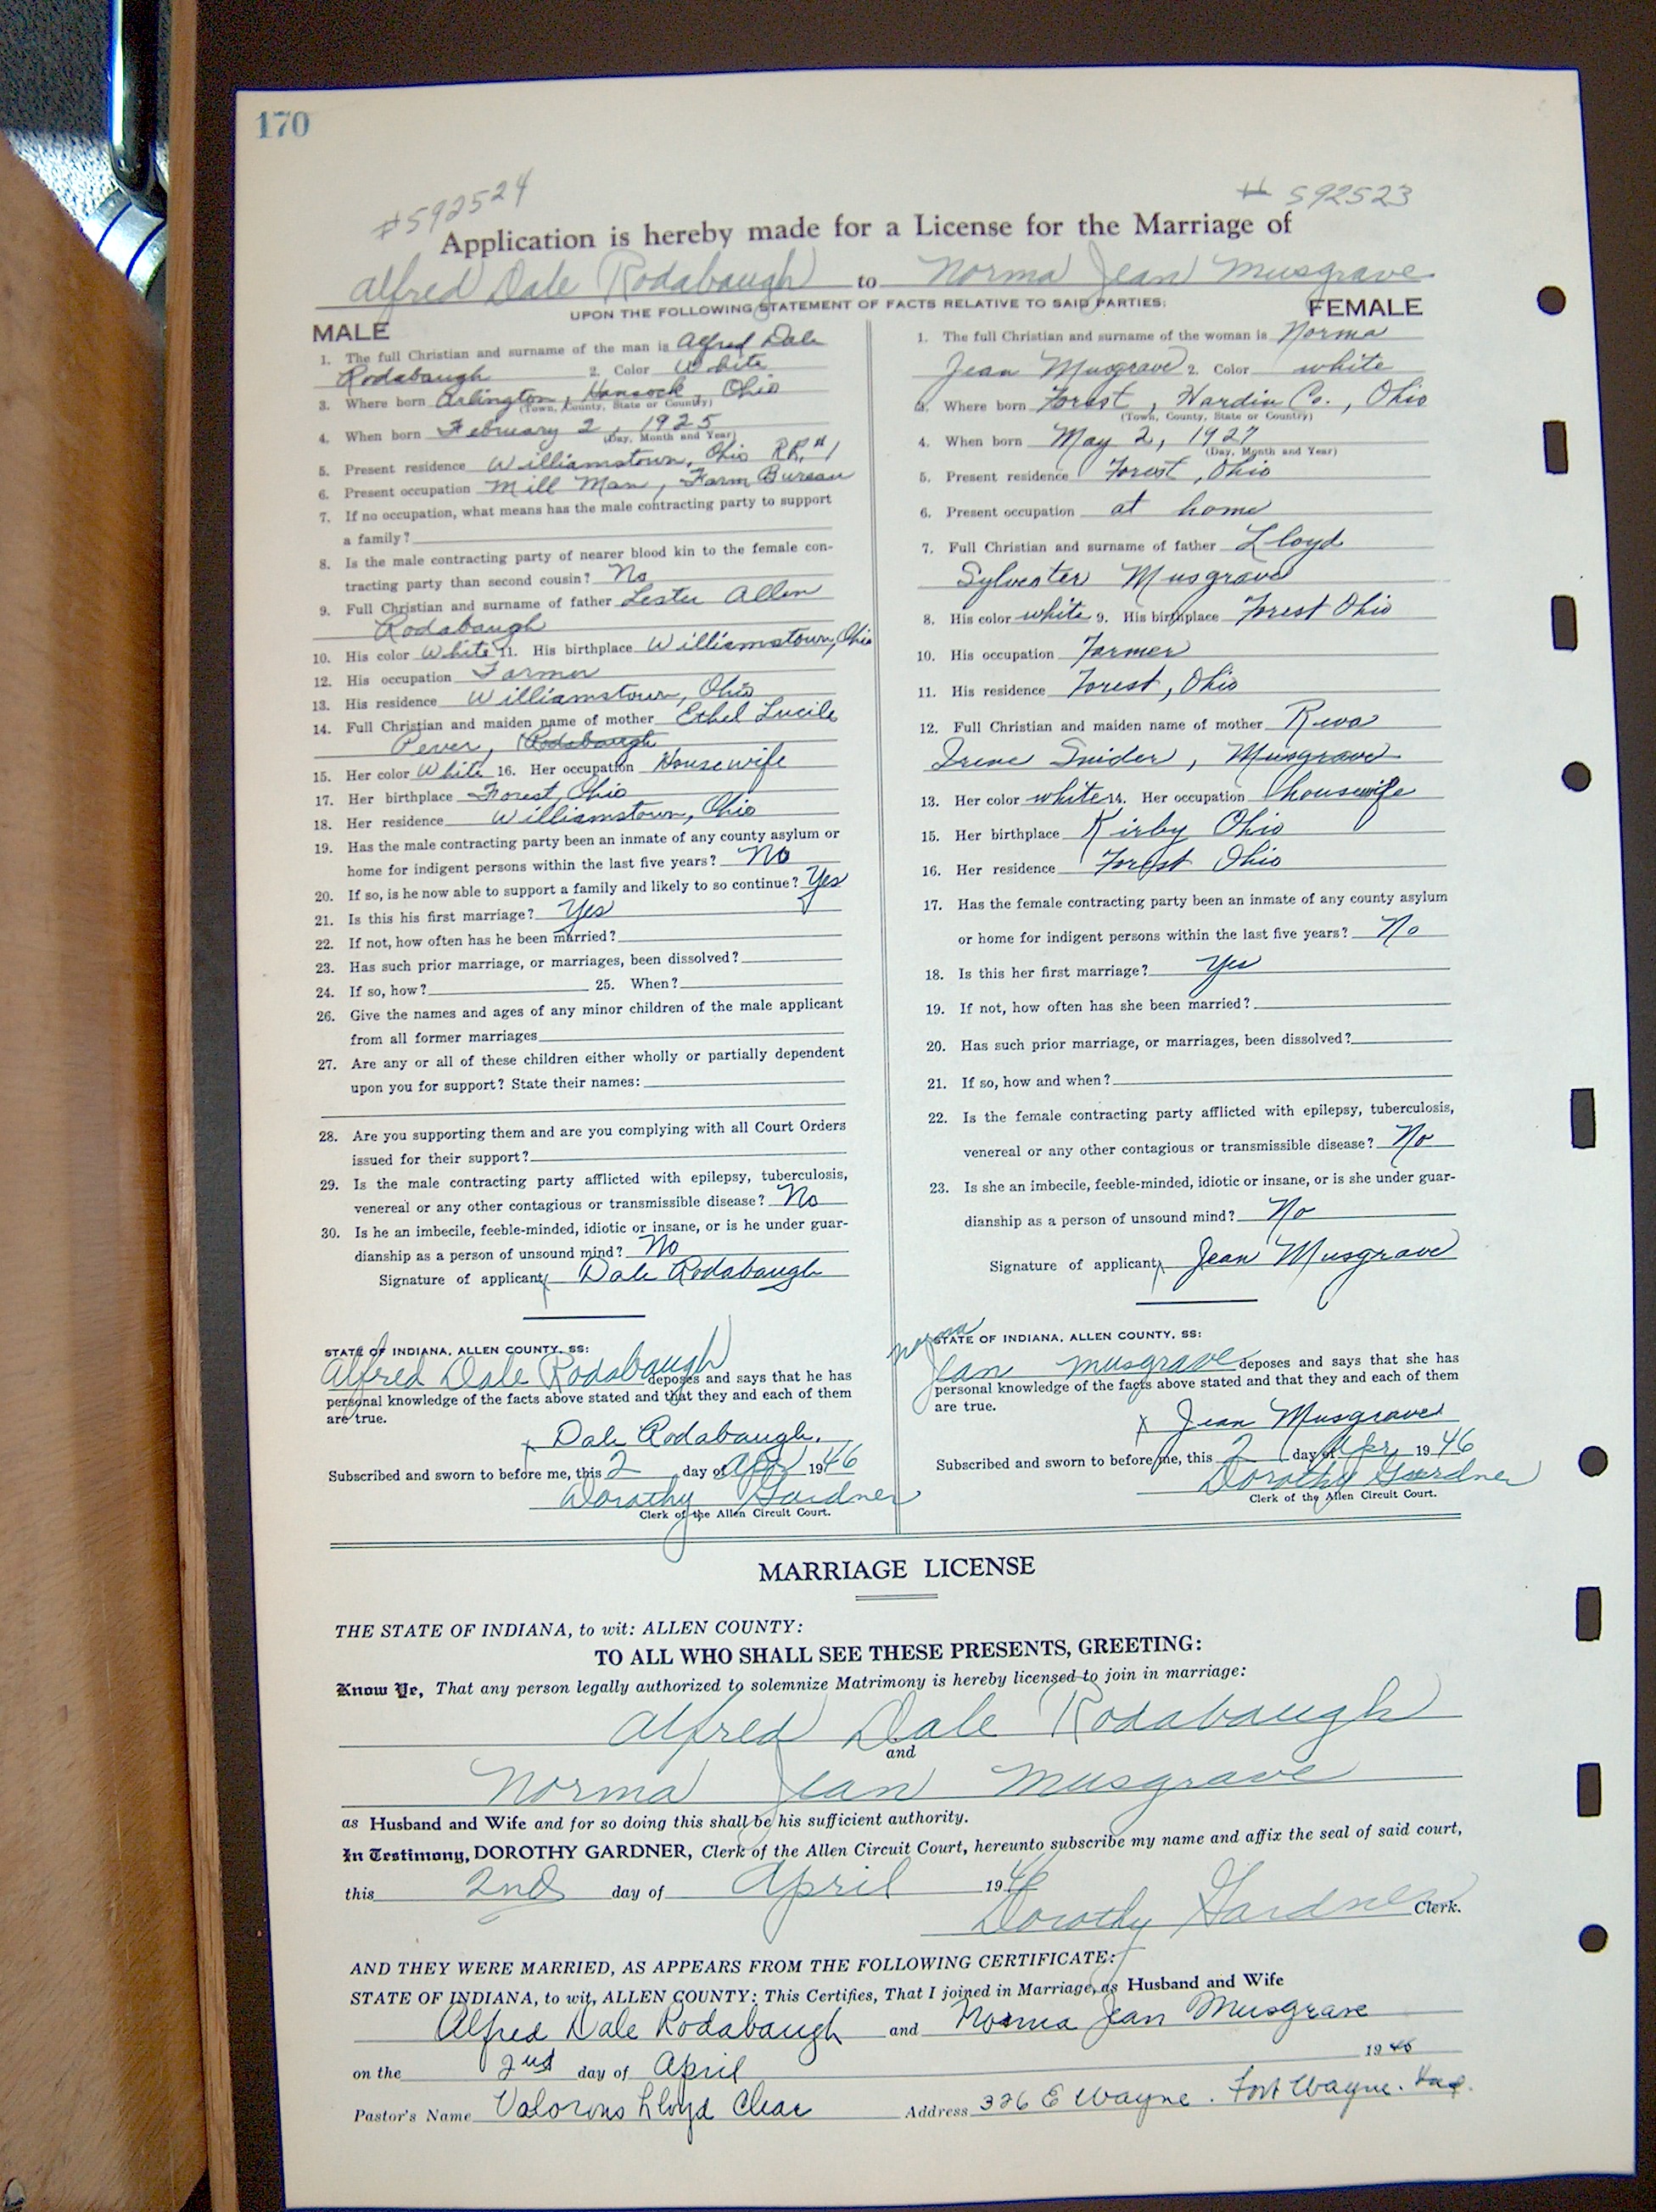 170
#592524
# 592523
Application is hereby made for a License for the Marriage of
Alfred Dale Rodabaugh to Norma Jean Musgrave
UPON THE FOLLOWING STATEMENT OF FACTS RELATIVE TO SAID PARTIES:
MALE
1. The full Christian and surname of the man is Alfred Dale
Rodabaugh 2. Color White
3. Where born Arlington, Hancock, Ohio
(Town, County, State or Country)
4. When born February 2, 1925
(Day, Month and Year)
5. Present residence Williamstown, Ohio RR. #1
6. Present occupation Mill Man, Farm Bureau
7. If no occupation, what means has the male contracting party to support
a family?
8. Is the male contracting party of nearer blood kin to the female con-
tracting party than second cousin? No
9. Full Christian and surname of father Lester Allen
Rodabaugh
10. His color White 11. His birthplace Williamstown, Ohio
12. His occupation Farmer
13. His residence Williamstown, Ohio
14. Full Christian and maiden name of mother Ethel Lucile
Pever, Rodabaugh
15. Her color White 16. Her occupation Housewife
17. Her birthplace Forest, Ohio
18. Her residence Williamstown, Ohio
19. Has the male contracting party been an inmate of any county asylum or
home for indigent persons within the last five years? No
20. If so, is he now able to support a family and likely to so continue? Yes
21. Is this his first marriage? Yes
22. If not, how often has he been married?
23. Has such prior marriage, or marriages, been dissolved?
24. If so, how? 25. When?
26. Give the names and ages of any minor children of the male applicant
from all former marriages
27. Are any or all of these children either wholly or partially dependent
upon you for support? State their names:
28. Are you supporting them and are you complying with all Court Orders
issued for their support?
29. Is the male contracting party afflicted with epilepsy, tuberculosis,
venereal or any other contagious or transmissible disease? No
30. Is he an imbecile, feeble-minded, idiotic or insane, or is he under guar-
dianship as a person of unsound mind? No
Signature of applicant x Dale Rodabaugh
STATE OF INDIANA, ALLEN COUNTY, SS:
Alfred Dale Rodabaugh deposes and says that he has
personal knowledge of the facts above stated and that they and each of them
are true.
x Dale Rodabaugh.
Subscribed and sworn to before me, this 2 day of Apr 1946
Dorothy Gardner
Clerk of the Allen Circuit Court.
FEMALE
1. The full Christian and surname of the woman is Norma
Jean Musgrave 2. Color white
3. Where born Forest, Hardin Co., Ohio
(Town, County, State or Country)
4. When born May 2, 1927
(Day, Month and Year)
5. Present residence Forest, Ohio
6. Present occupation at home
7. Full Christian and surname of father Lloyd
Sylvester Musgrave
8. His color white 9. His birthplace Forest Ohio
10. His occupation Farmer
11. His residence Forest, Ohio
12. Full Christian and maiden name of mother Reva
Irene Snider, Musgrave
13. Her color white 14. Her occupation housewife
15. Her birthplace Kirby Ohio
16. Her residence Forest Ohio
17. Has the female contracting party been an inmate of any county asylum
or home for indigent persons within the last five years? No
18. Is this her first marriage? Yes
19. If not, how often has she been married?
20. Has such prior marriage, or marriages, been dissolved?
21. If so, how and when?
22. Is the female contracting party afflicted with epilepsy, tuberculosis,
venereal or any other contagious or transmissible disease? No
23. Is she an imbecile, feeble-minded, idiotic or insane, or is she under guar-
dianship as a person of unsound mind? No
Signature of applicant x Jean Musgrave
STATE OF INDIANA, ALLEN COUNTY, SS:
Norma
Jean Musgrave deposes and says that she has
personal knowledge of the facts above stated and that they and each of them
are true.
x Jean Musgrave
Subscribed and sworn to before me, this 2 day of Apr, 1946
Dorothy Gardner
Clerk of the Allen Circuit Court.
MARRIAGE LICENSE
THE STATE OF INDIANA, to wit: ALLEN COUNTY:
TO ALL WHO SHALL SEE THESE PRESENTS, GREETING:
Know Ye, That any person legally authorized to solemnize Matrimony is hereby licensed to join in marriage:
Alfred Dale Rodabaugh
and
Norma Jean Musgrave
as Husband and Wife and for so doing this shall be his sufficient authority.
In Testimony, DOROTHY GARDNER, Clerk of the Allen Circuit Court, hereunto subscribe my name and affix the seal of said court,
this 2nd day of April 1946
Dorothy Gardner Clerk.
AND THEY WERE MARRIED, AS APPEARS FROM THE FOLLOWING CERTIFICATE:
STATE OF INDIANA, to wit, ALLEN COUNTY: This Certifies, That I joined in Marriage, as Husband and Wife
Alfred Dale Rodabaugh and Norma Jean Musgrave
on the 2nd day of April 19
Pastor's Name Lloyd Address 326 E Wayne. Fort Wayne. Ind.